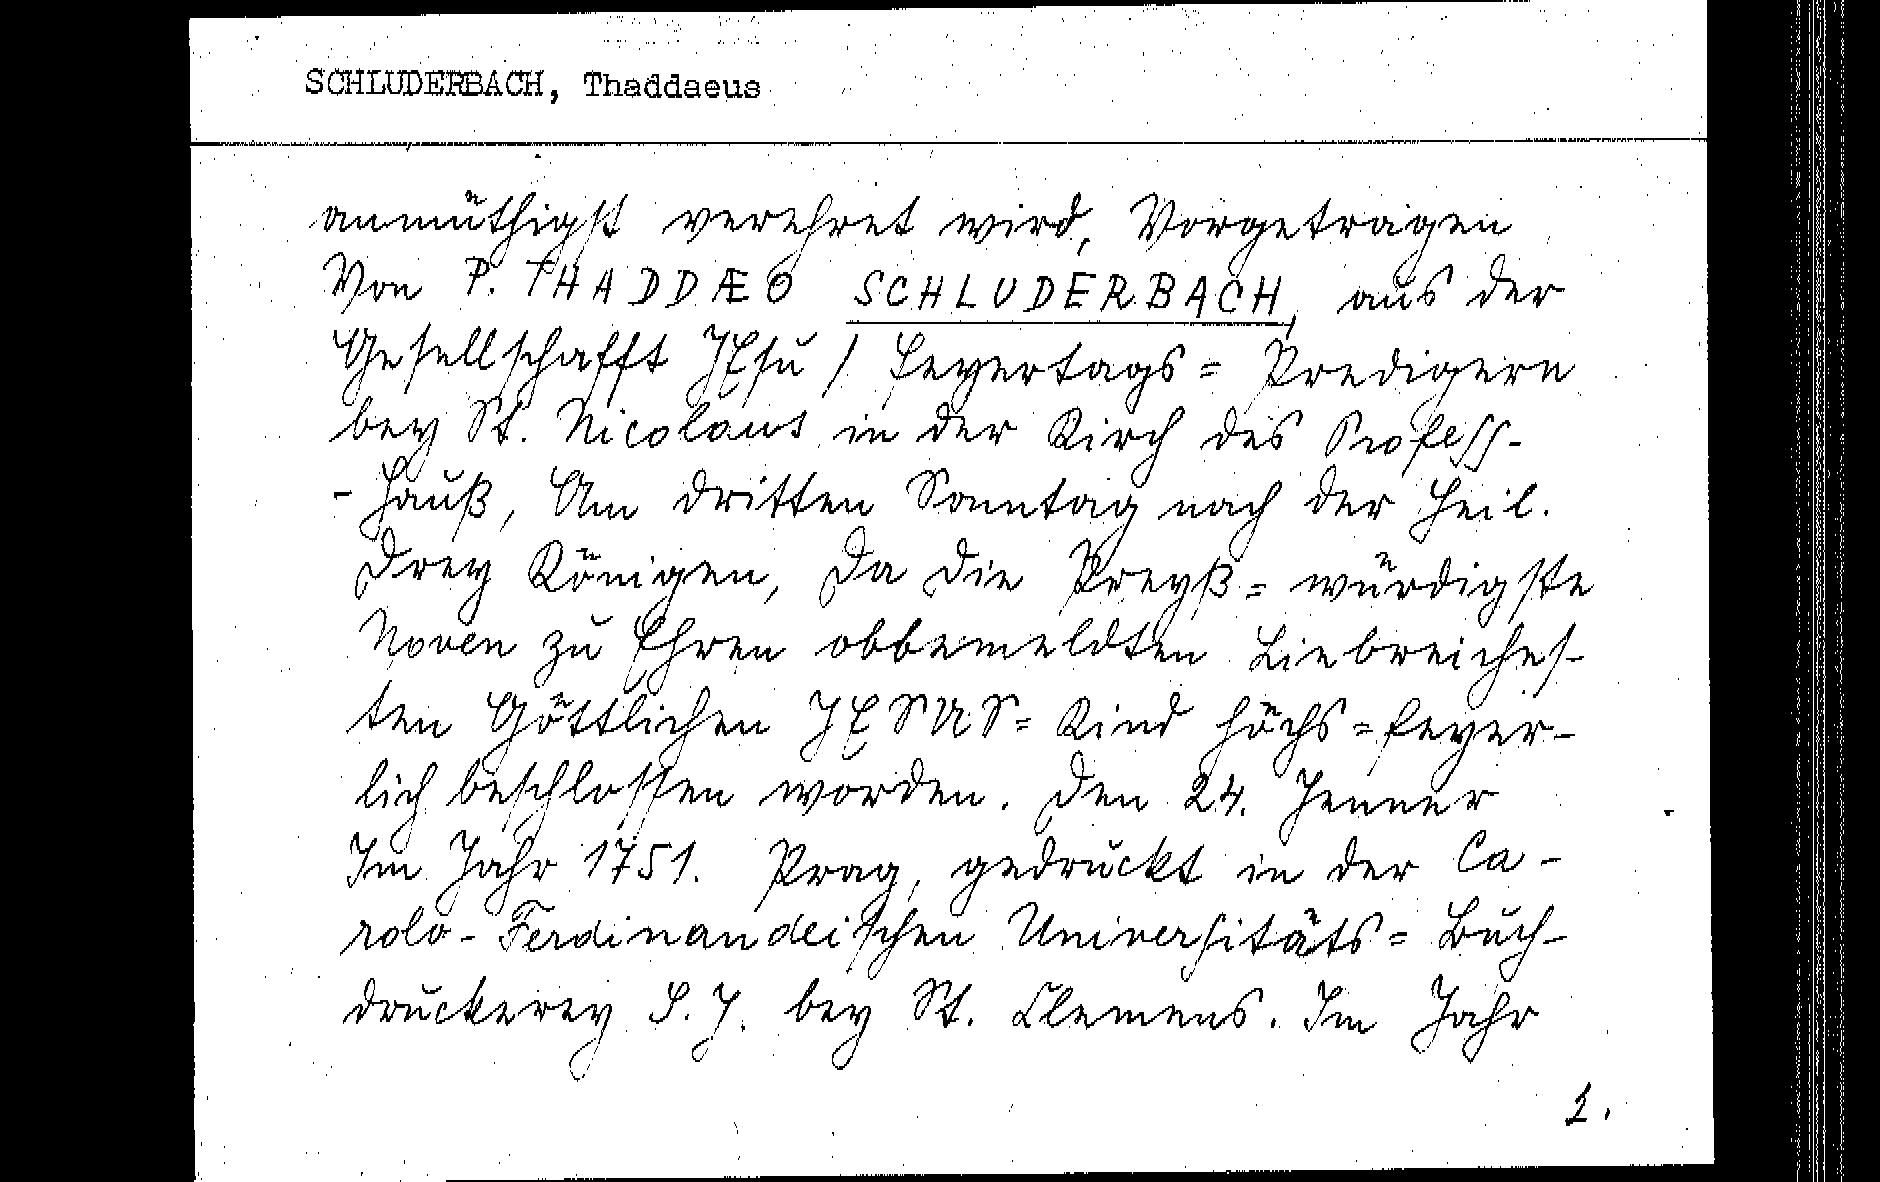 SCHLUDERBACH, Thaddaeus
anmüthigst verehret wird, Vorgetragen
Von P. THADDÆO SCHLUDERBACH, aus der
Gesellschafft JEsu / Feyertags= Predigern
bey St. Nicolaus in der Kirch des Profess-
- Hauß, Am dritten Sonntag nach der Heil.
Drey Königen, Da die Preyß= würdigste
Noven zu Ehren obbemeldten Liebreiches-
ten Göttlichen JESUS= Kind höchs=feyer-
lich beschlossen worden. Den 24. Jenner
Im Jahr 1751. Prag, gedruckt in der Ca-
rolo-Ferdinandeischen Universitäts= Buch-
druckerey S.J. bey St. Clemens. Im Jahr
1.